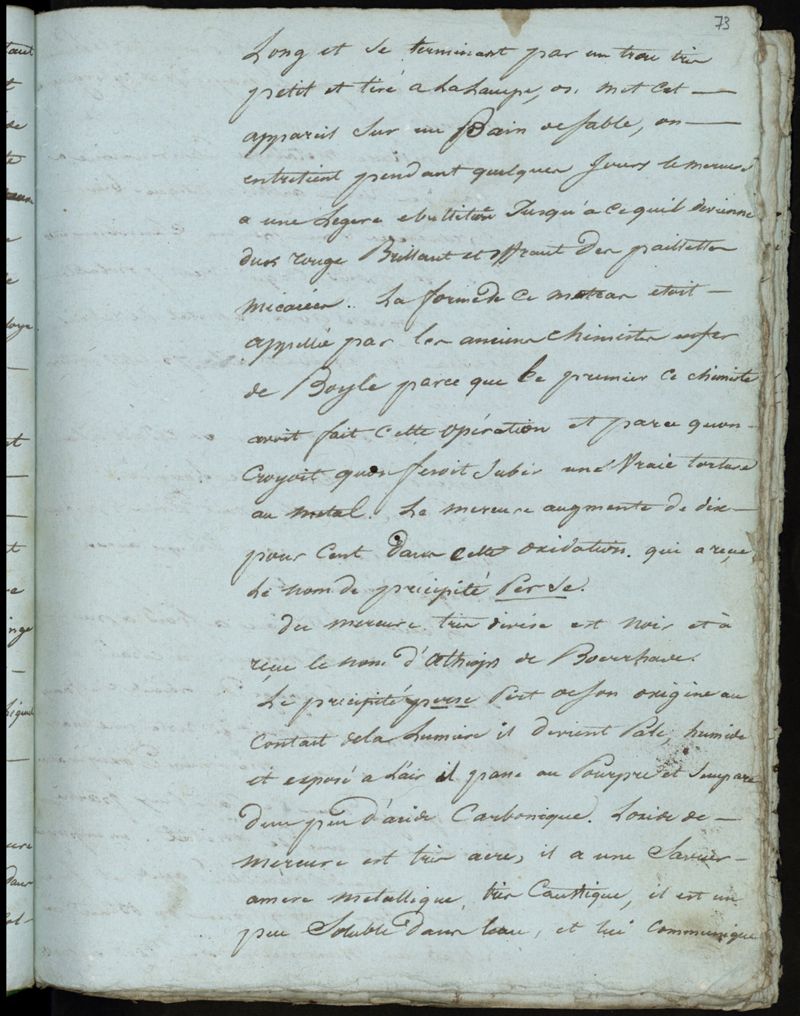 73
Long et se terminant par un trou tres
petit et tiré a la Lampe, on met cet
appareil sur un Bain de sable, on
entretient pendant quelques Jours le mercure
a une Legere ebullition Jusqu'a ce quil devienne
d'un rouge Brillant et offrant des paillettes
micacées. La forme de ce matras etoit
appellée par les anciens chimistes enfer
de Boyle parce que le premier ce chimiste
avoit fait cette opération et parce quon
Croyoit quon fesoit subir une Vraie torture
au metal. Le mercure augmente de dix
pour Cent dans cette oxidation. qui a reçue
Le nom de precipité Per Se.
Du mercure tres divisé est noir et à
reçue le nom d'Æthiops de Boerrhave.
Le precipité perse Pert de son oxigène au
Contait de la Lumiere il devient Pale, humide
et exposé a L'air il passe au Pourpre et s'empare
d'un peu d'acide Carbonique. L'oxide de
mercure est tres acre, il a une Saveur
amere metallique, tres Caustique, il est un
peu Soluble dans l'eau, et lui communique